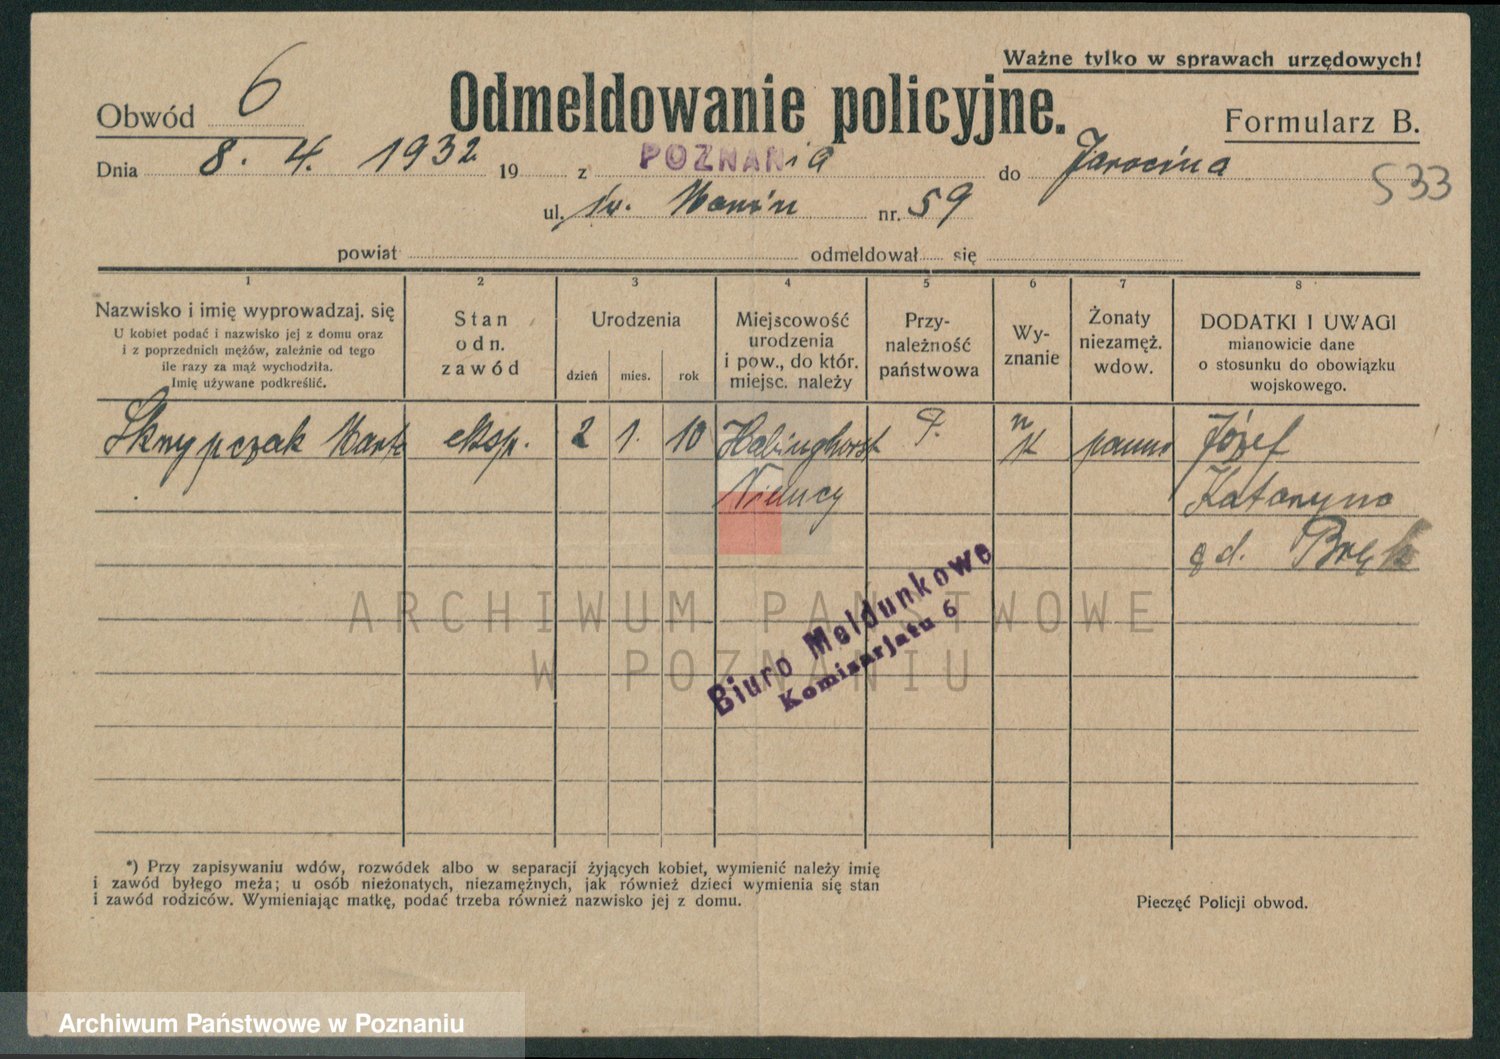 Ważne tylko w sprawach urzędowych!
Obwód 6
Odmeldowanie policyjne.
Formularz B.
Dnia 8. 4. 1932 19 z POZNANia do Jarocina
533
ul. św. Marcin nr. 59
powiat odmeldował się
1 2 3 4 5 6 7 8
Nazwisko i imię wyprowadzaj. się
U kobiet podać i nazwisko jej z domu oraz
i z poprzednich mężów, zależnie od tego
ile razy za mąż wychodziła.
Imię używane podkreślić.
Stan
odn.
zawód
Urodzenia
dzień mies. rok
Miejscowość
urodzenia
i pow., do któr.
miejsc. należy
Przy-
należność
państwowa
Wy-
znanie
Żonaty
niezamęż.
wdow.
DODATKI I UWAGI
mianowicie dane
o stosunku do obowiązku
wojskowego.
Skrzypczak Marta eksp. 2 1. 10 Habinghorst P. panna Józef
Niemcy Katarzyna
Biuro Meldunkowe
Komisarjatu 6
ARCHIWUM PAŃSTWOWE
W POZNANIU
*) Przy zapisywaniu wdów, rozwódek albo w separacji żyjących kobiet, wymienić należy imię
i zawód byłego meża; u osób nieżonatych, niezamężnych, jak również dzieci wymienia się stan
i zawód rodziców. Wymieniając matkę, podać trzeba również nazwisko jej z domu.
Pieczęć Policji obwod.
Archiwum Państwowe w Poznaniu